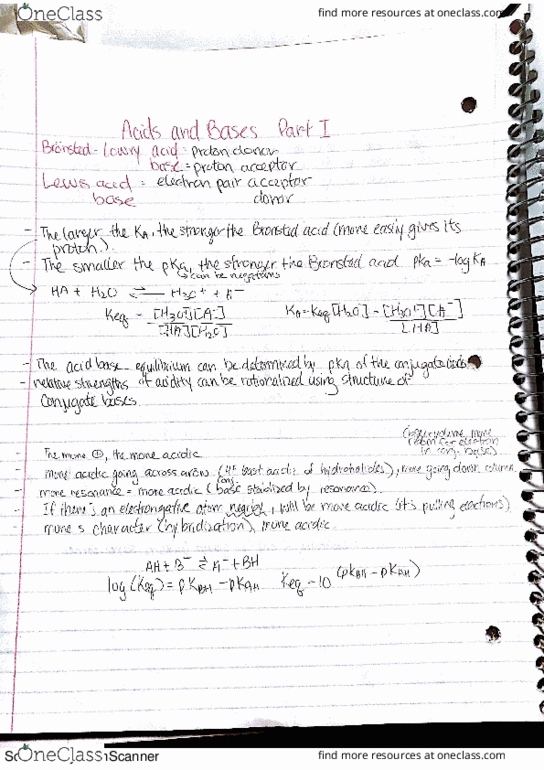 OneClass find more resources at oneclass.com
Acids and Bases Part I
Bronsted-Lowry acid = proton donor
base = proton acceptor
Lewis acid = electron pair acceptor
base donor
- The larger the KA, the stronger the Bronsted acid (more easily gives its
proton).
- The smaller the pKa, the stronger the Bronsted acid pKa = -log KA
↳ can be negative
HA + H2O ⇌ H3O+ + A-
Keq = [H3O+][A-] / [HA][H2O] KA = Keq[H2O] = [H3O+][A-] / [HA]
- The acid base equilibrium can be determined by pKa of the conjugate
- relative strengths of acidity can be rationalized using structure of
conjugate bases
The more ⊕, the more acidic
more
room for electron
in conj. base)
- more acidic going across a row ( least acidic of hydrohalides), more going down column
- more resonance = more acidic (conj base stabilized by resonance).
- If there's an electronegative atom nearby, will be more acidic (it's pulling electrons)
more s character (hybridization), more acidic.
AH + B- ⇌ A- + BH
log(Keq) = pKBH - pKAH Keq = 10 (pKBH - pKAH)
OneClass Scanner find more resources at oneclass.com